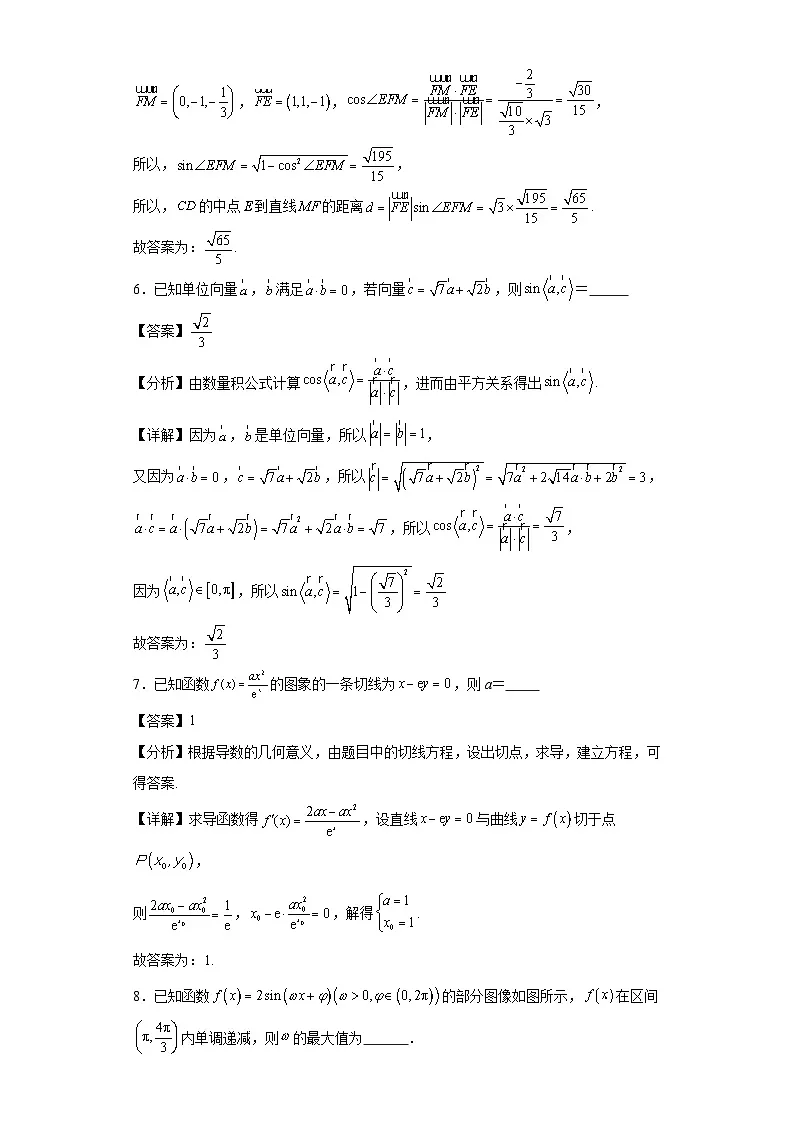 FM = (0,−1,−1/3)，FE = (1,1,−1)，cos∠EFM = (FM·FE)/(|FM|·|FE|) = (−2/3)/(√10/3×√3) = √30/15，
所以，sin∠EFM = √(1−cos²∠EFM) = √195/15，
所以，CD的中点E到直线MF的距离d = |FE|sin∠EFM = √3×√195/15 = √65/5．
故答案为：√65/5．
6．已知单位向量a，b满足a·b = 0，若向量c = √7a + √2b，则sin⟨a,c⟩＝
【答案】√2/3
【分析】由数量积公式计算cos⟨a,c⟩ = (a·c)/(|a|·|c|)，进而由平方关系得出sin⟨a,c⟩．
【详解】因为a，b是单位向量，所以|a| = |b| = 1，
又因为a·b = 0，c = √7a + √2b，所以|c| = √((√7a + √2b)²) = √(7a² + 2√14a·b + 2b²) = 3，
a·c = a·(√7a + √2b) = √7a² + √2a·b = √7，所以cos⟨a,c⟩ = (a·c)/(|a|·|c|) = √7/3，
因为⟨a,c⟩∈[0,π]，所以sin⟨a,c⟩ = √(1−(√7/3)²) = √2/3
故答案为：√2/3
7．已知函数f(x) = ax²/eˣ的图象的一条切线为x − ey = 0，则a＝
【答案】1
【分析】根据导数的几何意义，由题目中的切线方程，设出切点，求导，建立方程，可
得答案．
【详解】求导函数得f′(x) = (2ax − ax²)/eˣ，设直线x − ey = 0与曲线y = f(x)切于点
P(x₀,y₀)，
则(2ax₀ − ax₀²)/e^x₀ = 1/e，x₀ − e·ax₀²/e^x₀ = 0，解得{a = 1, x₀ = 1．
故答案为：1．
8．已知函数f(x) = 2sin(ωx + φ)(ω > 0,φ∈(0,2π))的部分图像如图所示，f(x)在区间
(π,4π/3)内单调递减，则ω的最大值为．